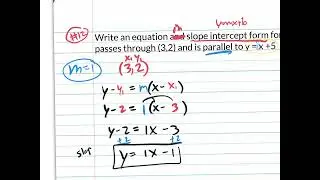 y=mx+b
#12 Write an equation and m slope intercept form for
passes through (3,2) and is parallel to y = x +5
m=1
x₁ y₁
(3,2)
y-y₁ = m(x-x₁)
y-2 = 1(x- 3)
y-2 = 1x - 3
+2 +2
y = 1x - 1